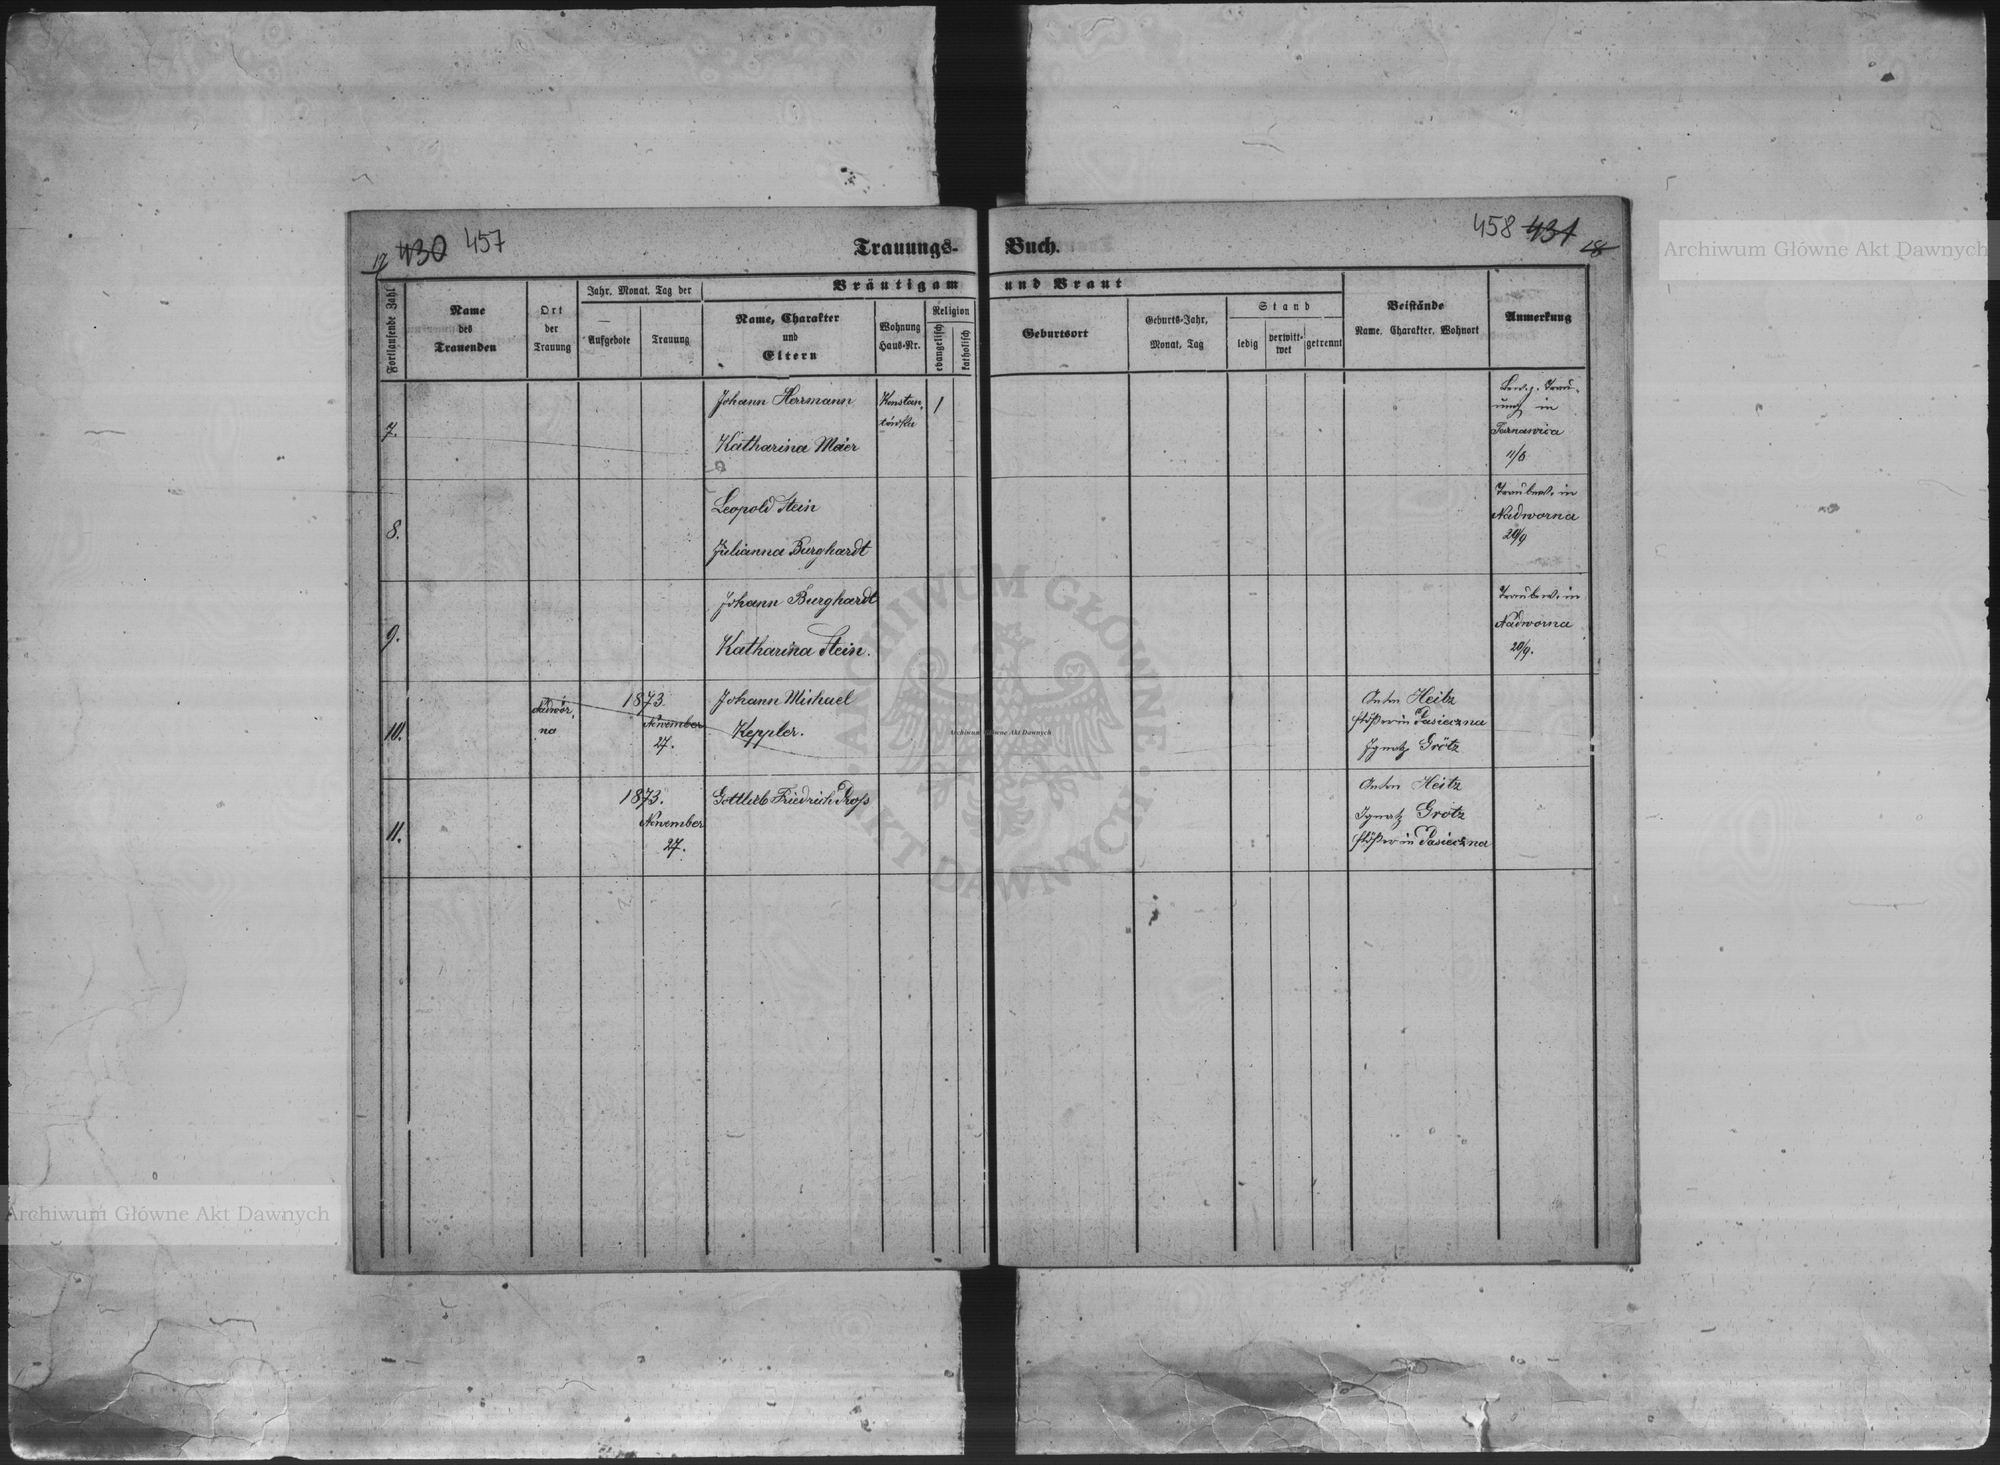 17 430 457
Trauungs-Buch.
458 431 18
Fortlaufende Zahl
Name
des
Trauenden
Ort
der
Trauung
Jahr, Monat, Tag der
Aufgebote
Trauung
Bräutigam und Braut
Name, Charakter
und
Eltern
Wohnung
Haus-Nr.
Religion
evangelisch
katholisch
Geburtsort
Geburts-Jahr,
Monat, Tag
Stand
ledig
verwitt-
wet
getrennt
Beistände
Name, Charakter, Wohnort
Anmerkung
7.
Johann Herrmann
Katharina Maier
Konstan
tówka
in
Tarnawica
11/8
8.
Leopold Stein
Julianna Burghardt
in
Nadworna
20/9
9.
Johann Burghardt
Katharina Stein.
in
Nadworna
20/9.
10.
Nadwór
na
1873.
November
27.
Johann Michael
Keppler.
Anton Heitz
in Pasieczna
Ignatz Grötz
11.
1873.
November
27.
Gottlieb Friedrich Proß
Anton Heitz
Ignatz Grotz
in Pasieczna
Archiwum Główne Akt Dawnych
ARCHIWUM GŁÓWNE · AKT DAWNYCH ·
Archiwum Główne Akt Dawnych
Archiwum Główne Akt Dawnych